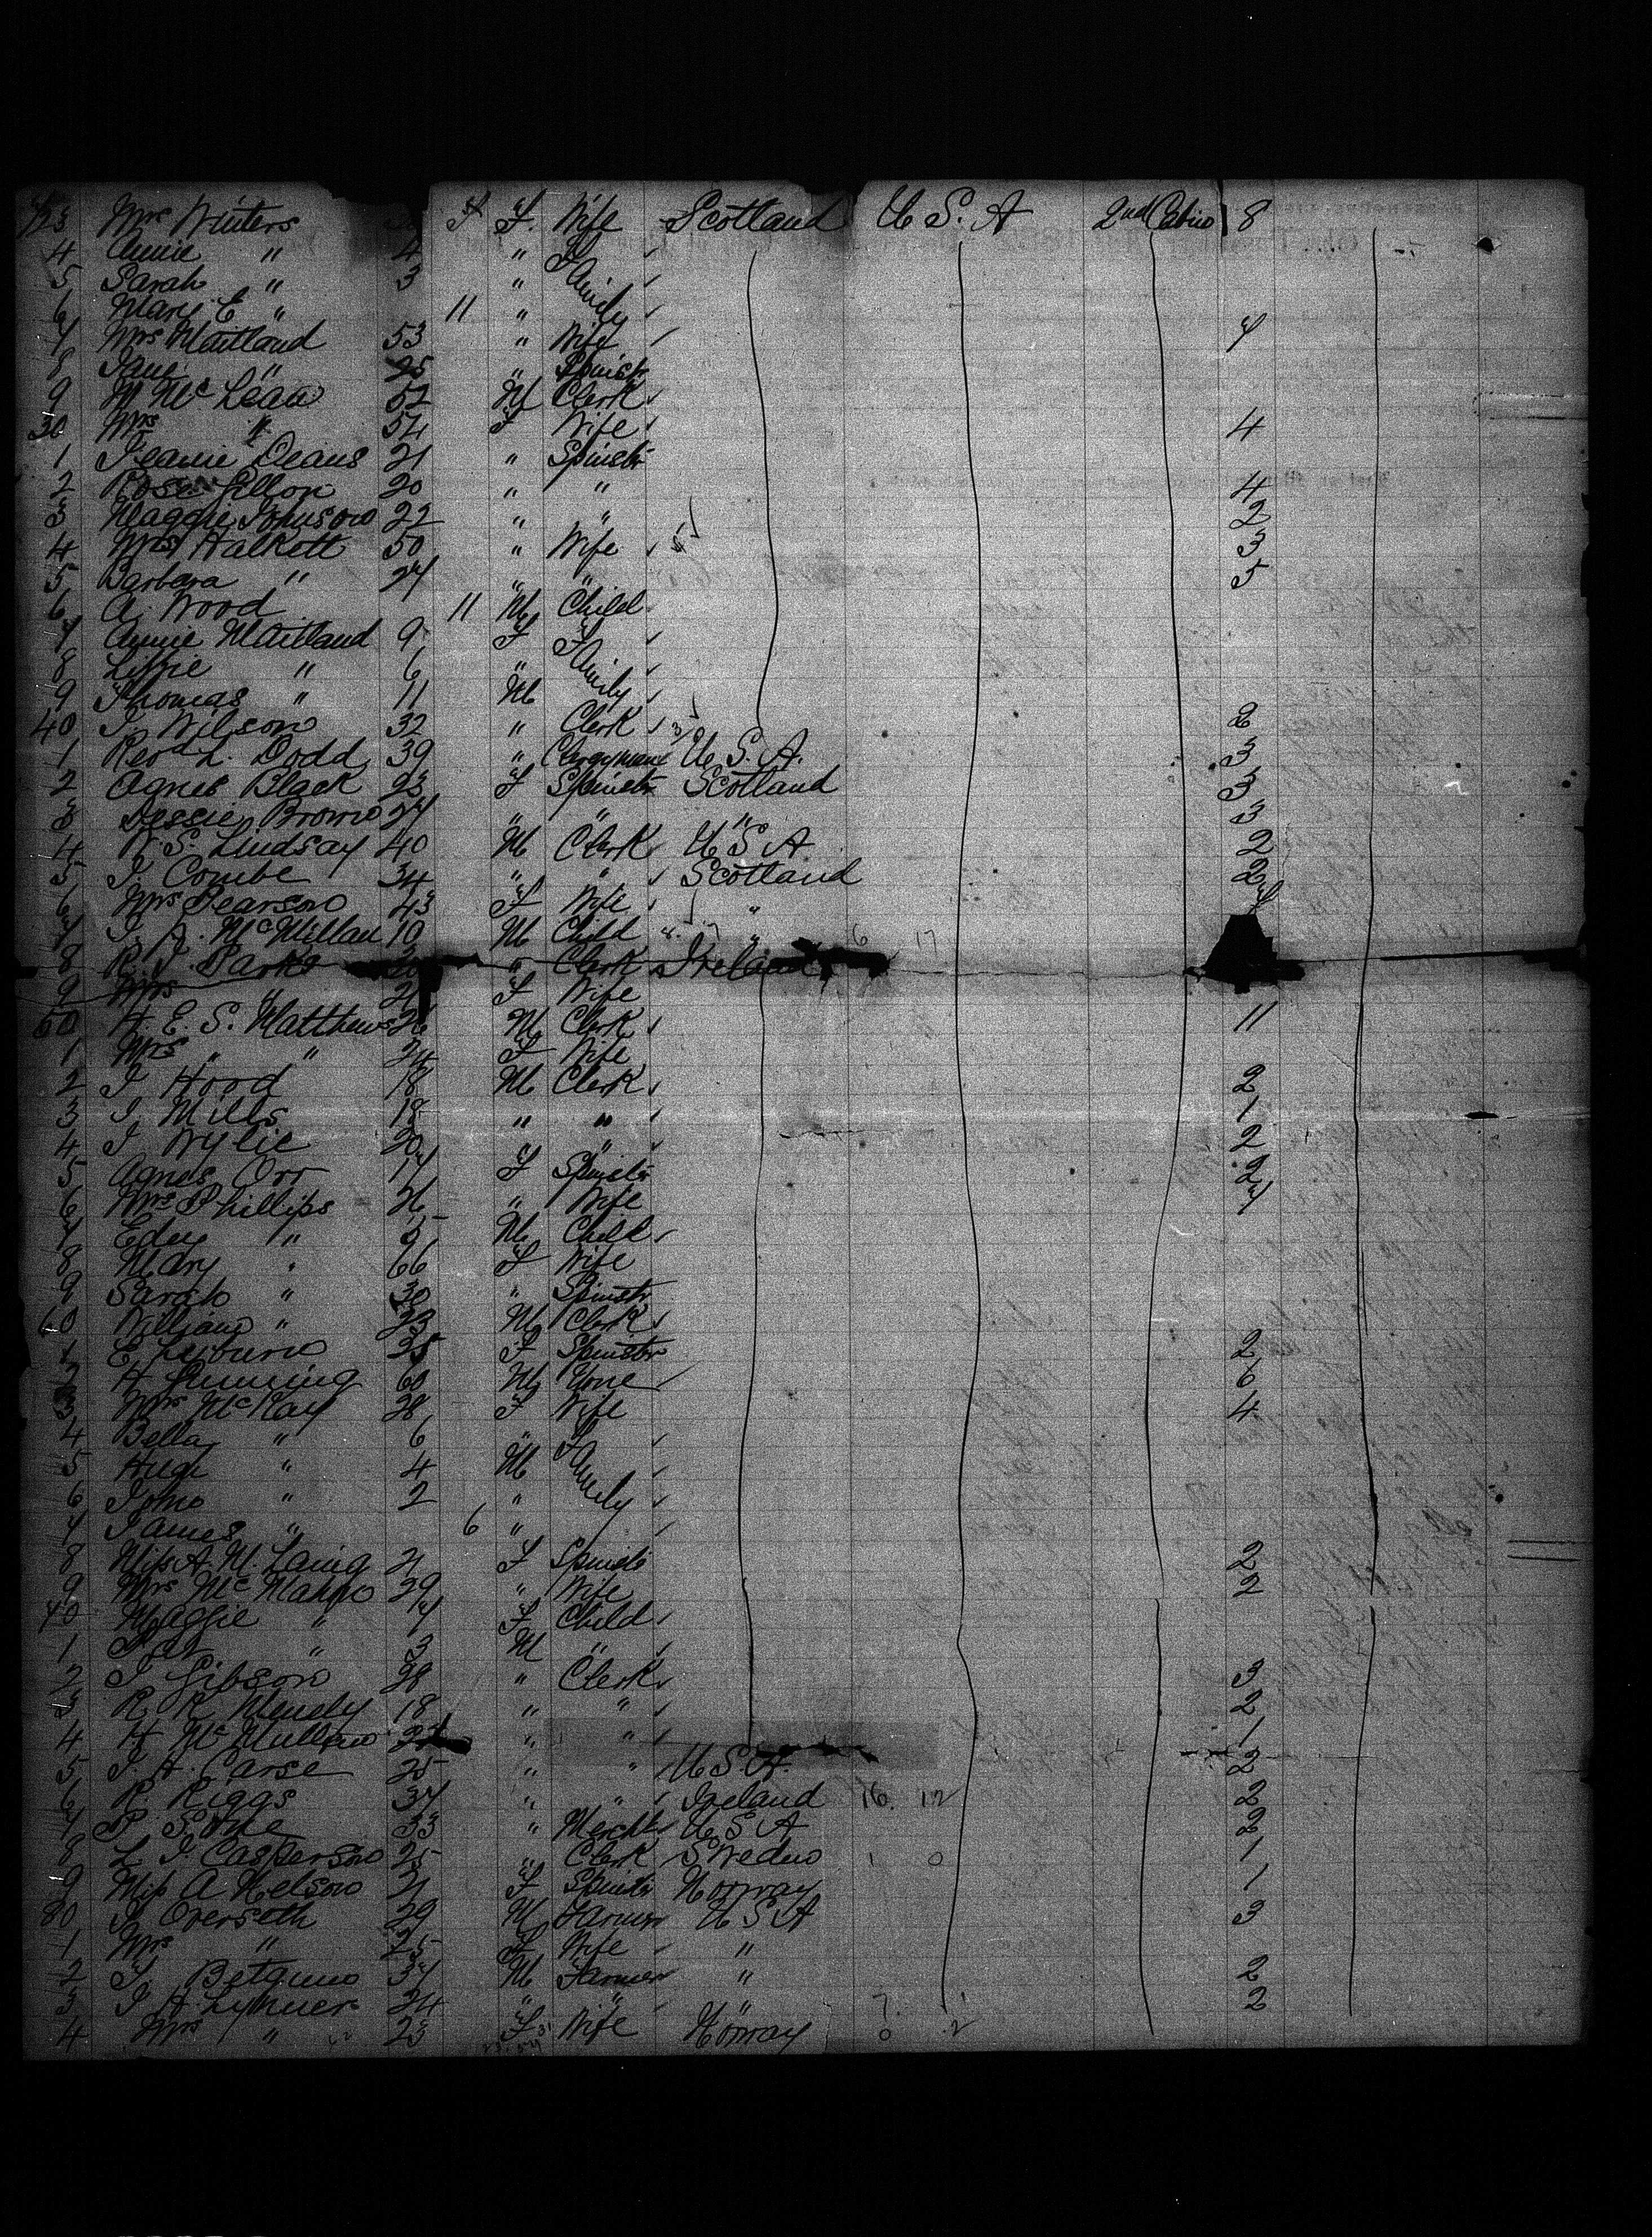 Mrs Winters F. Wife Scotland U S. A 2nd Cabin 8
4 Annie " 4 "
5 Sarah " 3 " Family
6 Mary E " 11 "
7 Mrs Maitland 53 " Wife 7
8 Jane " 25 " Spinstr
9 McLean 52 M Clerk
30 Mrs " 54 F Wife 4
1 Jeanie Deans 21 " Spinstr
2 Rose Gillon 20 " " 4
3 Maggie Johnson 22 " " 2
4 Mrs Halkett 50 " Wife 3
5 Barbara " 27 " " 5
6 A. Wood 11 M Child
7 Annie Maitland 9 F
8 Lizzie " 6 " Family
9 Thomas " 11 M
40 J. Wilson 32 " Clerk 2
1 Revd L. Dodd 39 " Clergyman U. S. A. 3
2 Agnes Black 23 F Spinstr Scotland 3
3 Jessie Brown 27 " " " 3
4 W. S. Lindsay 40 M Clerk U S A 2
5 J Combe 34 " " Scotland 2
6 Mrs Pearson 43 F Wife "
7 J. A. McMillan 10 M Child " 6 17
8 R. J. Park " Clerk Ireland
9 Mrs " F Wife
50 H. E. S. Matthews 26 M Clerk 11
1 Mrs " " 24 F Wife
2 J Hood 18 M Clerk 2
3 J. Mills 18 " " 1
4 J Wylie 20 " " 2
5 Agnes Orr 17 F Spinstr 2
6 Mrs Phillips 26 " Wife 7
7 " M Child
8 Mary " 66 F Wife
9 Sarah " 30 " Spinstr
60 William " 23 M Clerk
1 E 25 F Spinstr 2
2 H 60 M None 6
3 Mrs McKay 28 F Wife 4
4 Bella " 6 "
5 Hugh " 4 M Family
6 John " 2 "
7 James " 6 "
8 Miss A. M. Laing 21 F Spinstr 2
9 Mrs McMahon 29 " Wife 2
70 Maggie " 7 F Child
1 " 3 M "
2 J Gibson 28 " Clerk 3
3 R. R. 18 " " 2
4 H McMullen " " 1
5 J. A. Carse 25 " " U S A. 2
6 R. Riggs 37 " " Ireland 16. 12 2
7 P. 33 " Mercht U S A 2
8 L J Casperson 25 " Clerk Sweden 1 0 1
9 Miss A Nelson 21 F Spinstr Norway 1
80 J Overseth 29 M Farmer U S A 3
1 Mrs " 25 F Wife "
2 J 37 M Farmer " 2
3 J A 24 " " " 7. 1 2
4 Mrs " 23 F Wife Norway 0 2